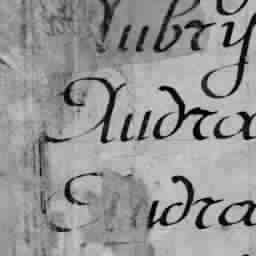 Aubry
Audra
Audra